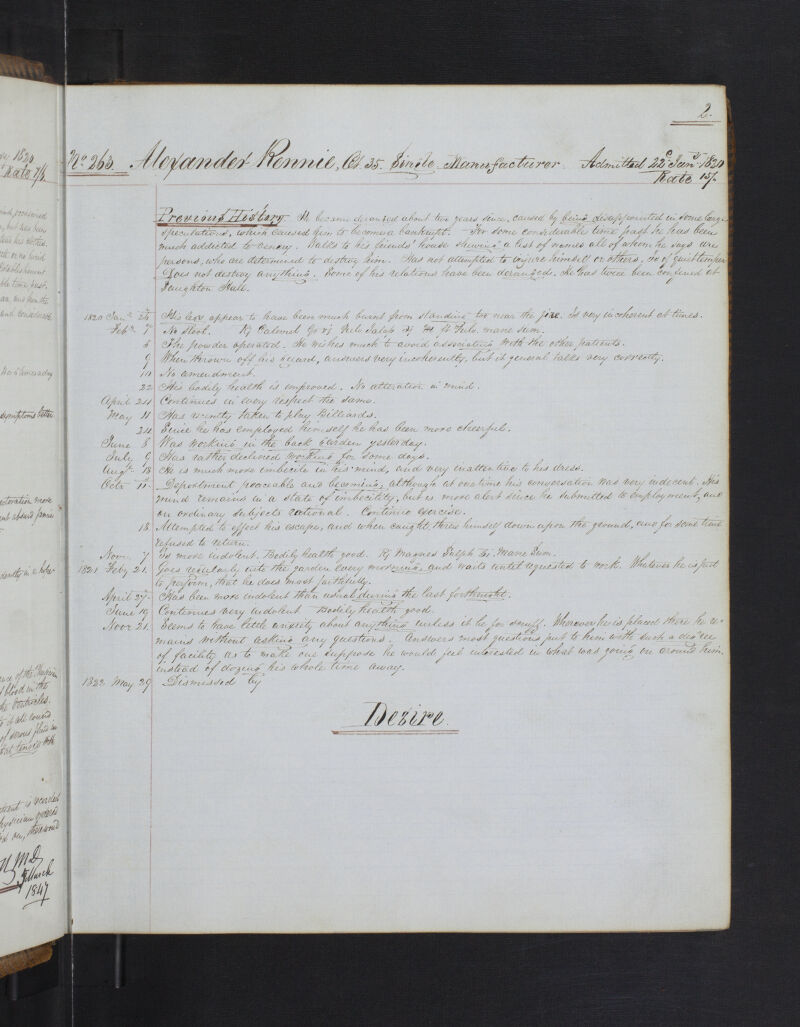 2.
No. 263. Alexander Rennie, Æt. 35. Single. Manufacturer. Admitted 22d Jany 1820
Rate 15/.
Previous History. It became deranged about two years since, caused by being disappointed in some large
speculations, which caused him to become a bankrupt. For some considerable time past he has been
much addicted to venery. Walks to his friends' house shewing a list of names all of whom he says are
persons, who are determined to destroy him. Has not attempted to injure himself or others, is of quiet temper
Does not destroy anything. Some of his relations have been deranged. He has twice been confined at
Saughton Hall.
1820 Jany 24 His legs appear to have been much burnt from standing too near the fire. Is very incoherent at times.
Feby 7 No stool. Calomel gr Jalap mane sum.
8 The powder operated. He wishes much to avoid associating with the other patients.
9 When thrown off his guard, answers very incoherently, but in general talks very correctly.
10 No amendment.
22 His bodily health is improved. No alteration in mind.
April 24 Continues in every respect the same.
May 11 Has recently taken to play Billiards.
24 Since he has employed himself he has been more cheerful.
June 8 Was working in the back garden yesterday.
July 9 Has rather declined working for some days.
Augt 18 He is much more imbecile in his mind, and very inattentive to his dress.
Octr 11 Deportment peaceable and becoming, although at one time his conversation was very indecent. His
mind remains in a state of imbecility, but is more alert since he submitted to employment, and
on ordinary subjects rational. Continue exercise.
18 Attempted to effect his escape, and when caught, threw himself down upon the ground, and for some time
refused to return.
Novr 7 Is more indolent. Bodily health good. Magnes Sulph Mane Sum.
1821 Feby 21 Goes regularly into the garden every morning, and waits until requested to work. Whatever he is put
to perform, that he does most faithfully.
April 27 Has been more indolent than usual during the last forthnight.
June 19 Continues very indolent Bodily health good.
Novr 21 Seems to have little anxiety about anything unless it be for snuff. Wherever he is placed there he re-
mains without asking any questions. Answers most questions put to him with such a degree
of facility as to make one suppose he would feel interested in what was going on around him,
instead of dozing his whole time away.
1822 May 29 Dismissed by
Dezire.
1820
Rate
M.D.
March
1847